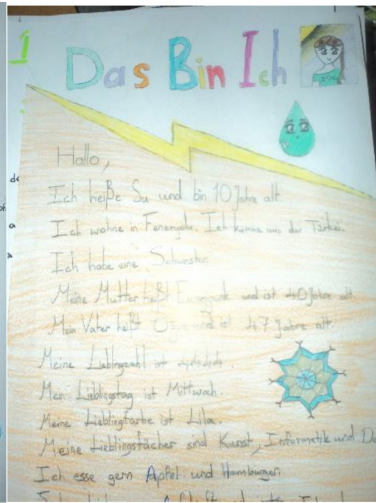 Das Bin Ich
Hallo,
Ich heiße Su und bin 10 Jahre alt
Ich wohne in Ich komme aus der Türkei.
Ich habe eine Schwester.
Meine Mutter heßt und ist 40 Jahre alt
Mein Vater heßt und ist 47 Jahre alt
Meine Lieblingszahl ist
Mein Lieblingstag ist Mittwoch.
Meine Lieblingfarbe ist Lila.
Meine Lieblingsfächer sind Kunst, Informatik und
Ich esse gern Apfel und Hamburger.